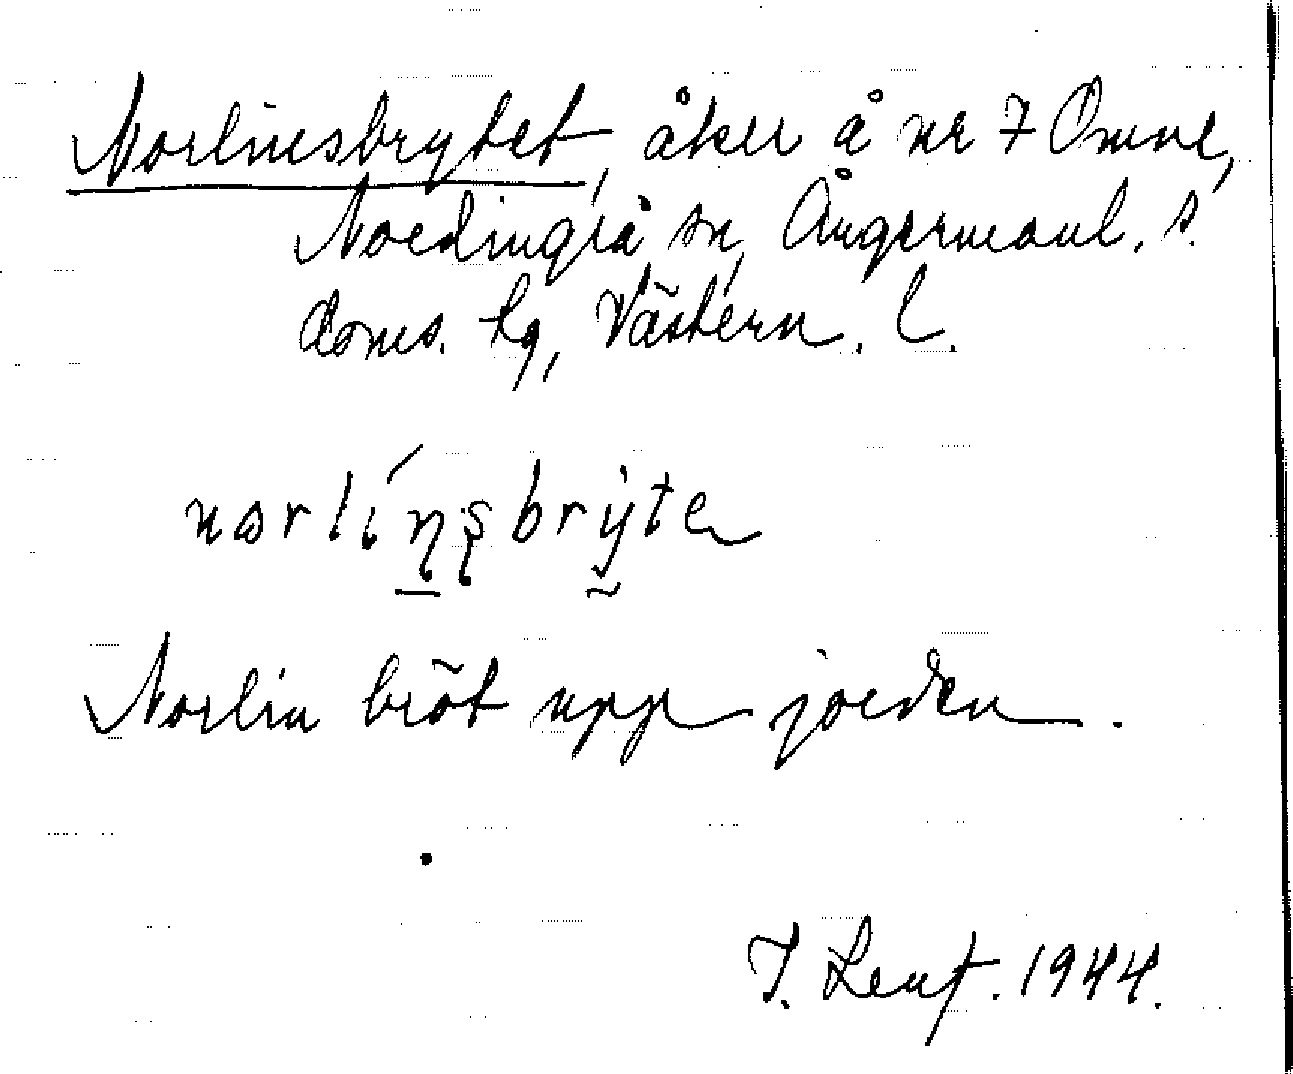 Norlinsbrytet, åker å nr 7 Omne,
Nordingrå sn, Ångermanl. s.
doms. tg, Västern. l.
nɷrlíṉşbryte
Norlin bröt upp jorden.
1944.